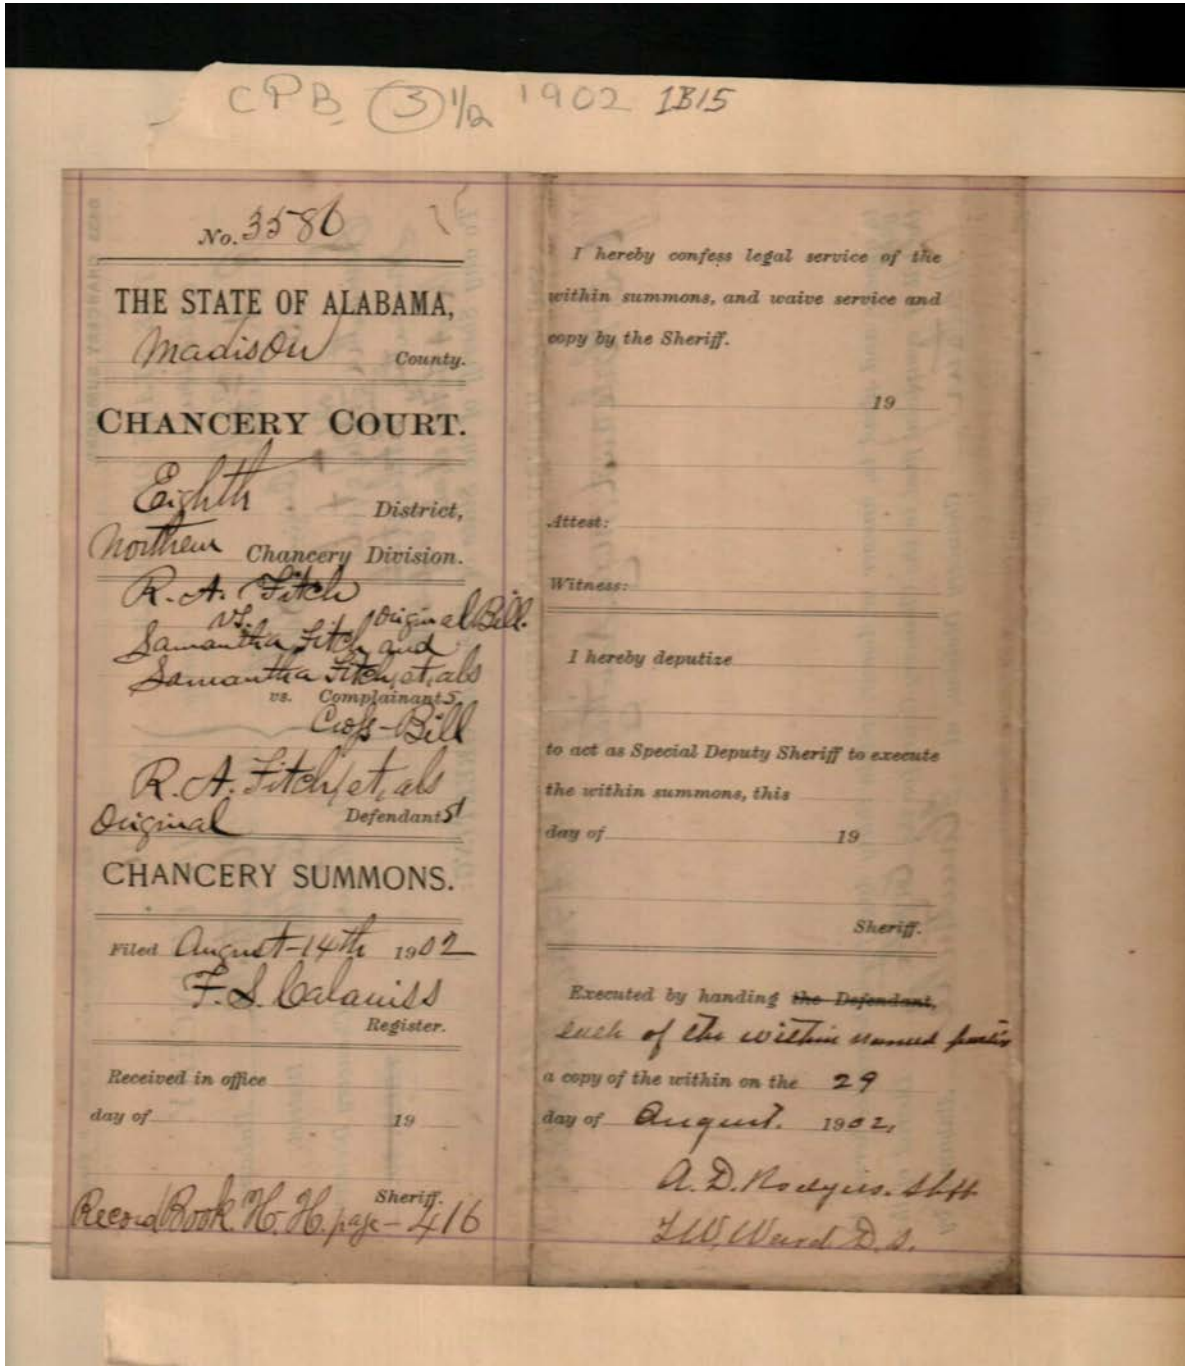 CPB 3 1/2 1902 1B15
No. 3586
THE STATE OF ALABAMA,
Madison County.
CHANCERY COURT.
Eighth District,
Northern Chancery Division.
R. A. Fitch
vs. Original Bill.
Samantha Fitch and
Samantha Fitch, et, als
vs. Complainants.
Cross-Bill
R. A. Fitch, et, als
Original Defendants
CHANCERY SUMMONS.
Filed August-14th 1902
F. S.
Register.
Received in office
day of 19
Sheriff.
Record Book H. H. page-416
I hereby confess legal service of the
within summons, and waive service and
copy by the Sheriff.
19
Attest:
Witness:
I hereby deputize
to act as Special Deputy Sheriff to execute
the within summons, this
day of 19
Sheriff.
Executed by handing the Defendant,
each of the within named parties
a copy of the within on the 29
day of August. 1902,
A. D. Rodgers. Shff
Ward D. S.